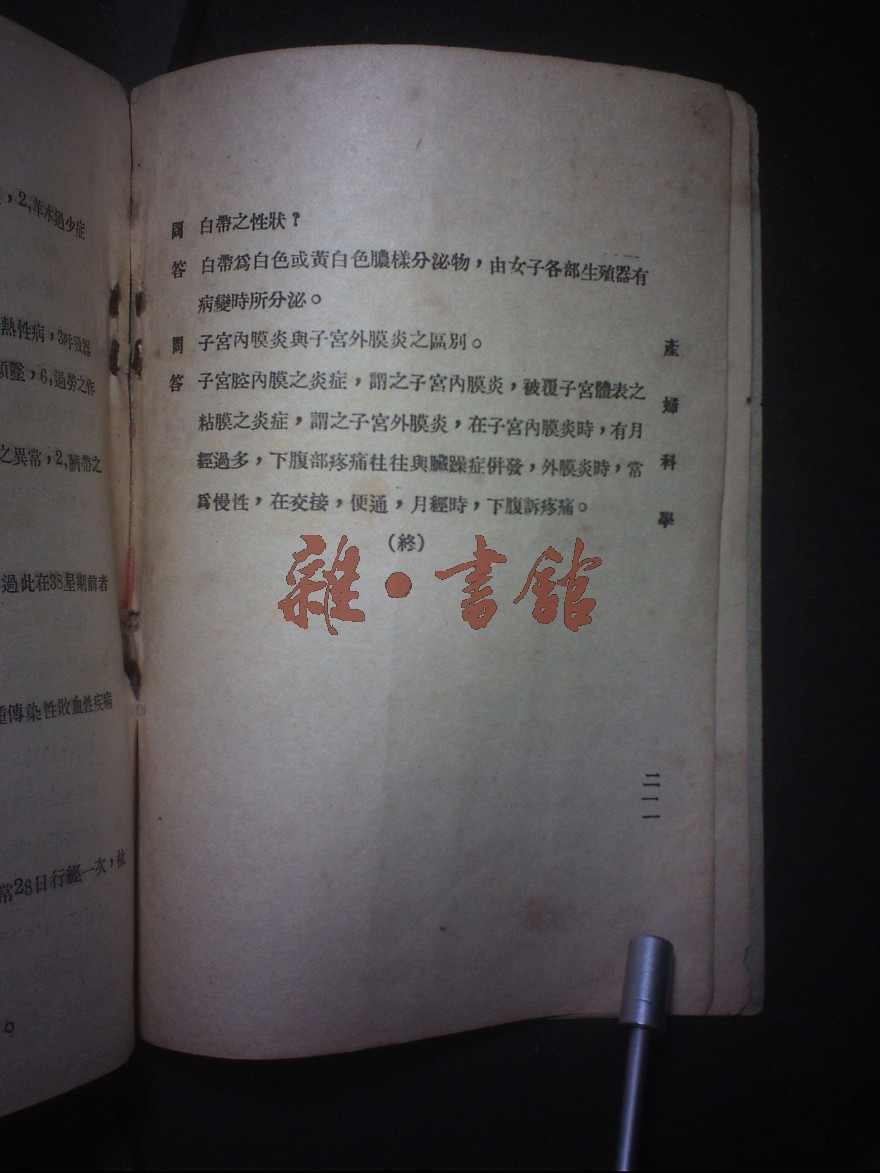 ，2,羊水過少症
熱性病，3呼吸器
墜，6,過勞之作
之異常，2,臍帶之
過此在38星期前者
重傳染性敗血性疾病
常28日行經一次，
。
問 白帶之性狀？
答 白帶爲白色或黃白色膿樣分泌物，由女子各部生殖器有
病變時所分泌。
問 子宮內膜炎與子宮外膜炎之區別。
答 子宮腔內膜之炎症，謂之子宮內膜炎，被覆子宮體表之
粘膜之炎症，謂之子宮外膜炎，在子宮內膜炎時，有月
經過多，下腹部疼痛往往與臟躁症併發，外膜炎時，常
爲慢性，在交接，便通，月經時，下腹訴疼痛。
（終）
產婦科學
二一一
雜·書館